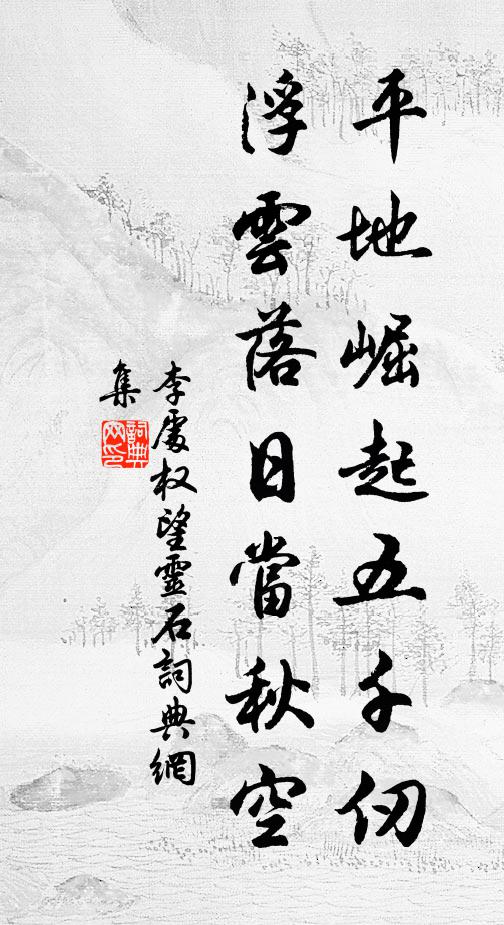 平地崛起五千仞
浮雲落日當秋空
李處权望靈石詞典網
集
詞典网印